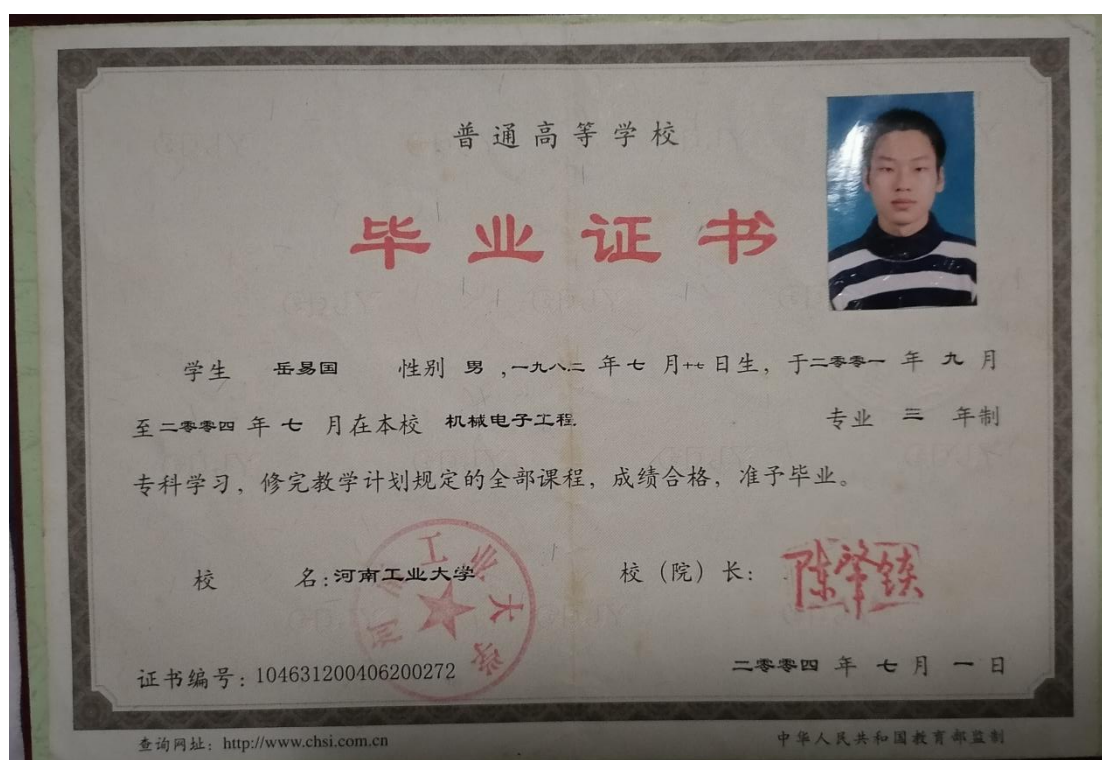 普通高等学校
毕业证书
学生 岳易国 性别 男 ,一九八二 年 七 月十七日生，于二零零一 年 九 月
至二零零四 年 七 月在本校 机械电子工程 专业 三 年制
专科学习，修完教学计划规定的全部课程，成绩合格，准予毕业。
校 名:河南工业大学 校（院）长: 陈肇锬
工业大学
证书编号: 104631200406200272 二零零四 年 七 月 一 日
查询网址: http://www.chsi.com.cn 中华人民共和国教育部监制